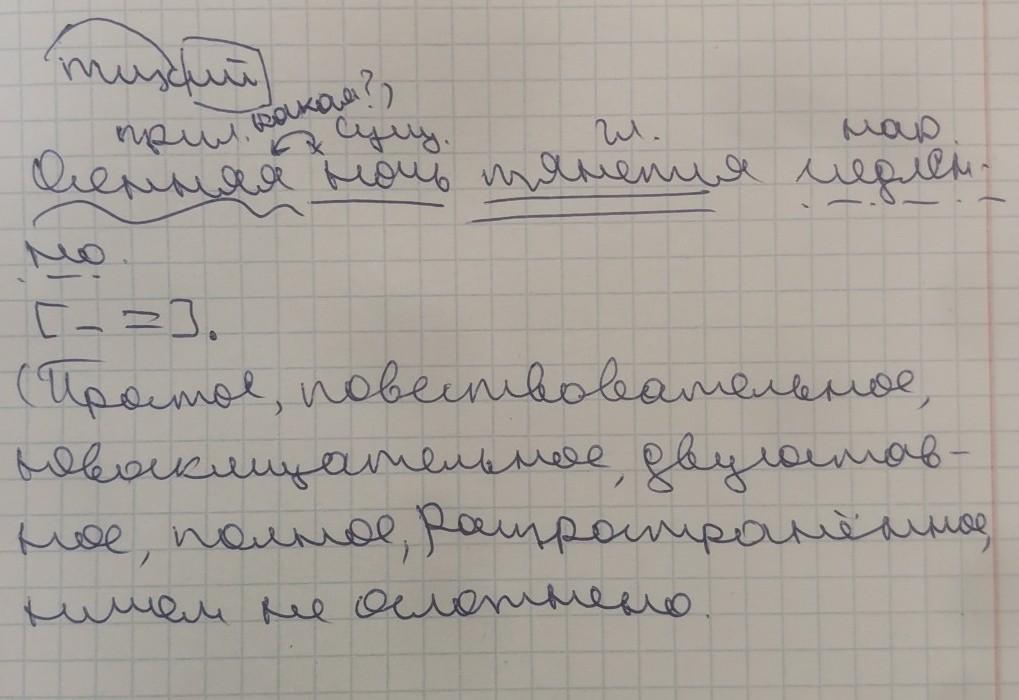 тихий
какая?
прил. сущ. гл. нар.
Осенняя ночь тянется медлен-
но.
[- =].
(Простое, повествовательное,
невосклицательное, двусостав-
ное, полное, распространённое,
ничем не осложнено.